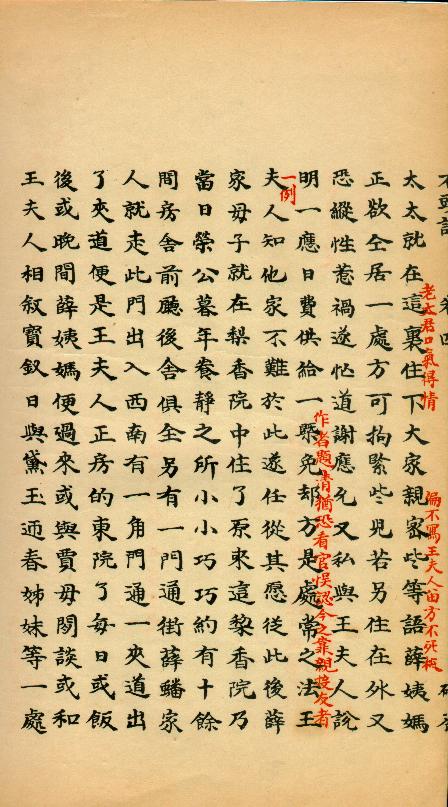 太太就在這裏住下大家親密些等語薛姨媽
老太君口氣得情
偏不寫王夫人留方不死板
正欲仝居一處方可拘緊些兒若另住在外又
恐縱性惹禍遂忙道謝應允又私與王夫人說
作者題清猶恐看官悞認今之靠親投友者
一例
明一應日費供給一槩免却方是處常之法王
夫人知他家不難於此遂任從其愿從此後薛
家母子就在梨香院中住了原來這黎香院乃
當日榮公暮年養靜之所小小巧巧約有十餘
間房舍前廳後舍俱全另有一門通街薛蟠家
人就走此門出入西南有一角門通一夾道出
了夾道便是王夫人正房的東院了每日或飯
後或晚間薛姨媽便過來或與賈母閑談或和
王夫人相叙寳釵日與黛玉迊春姊妹等一處